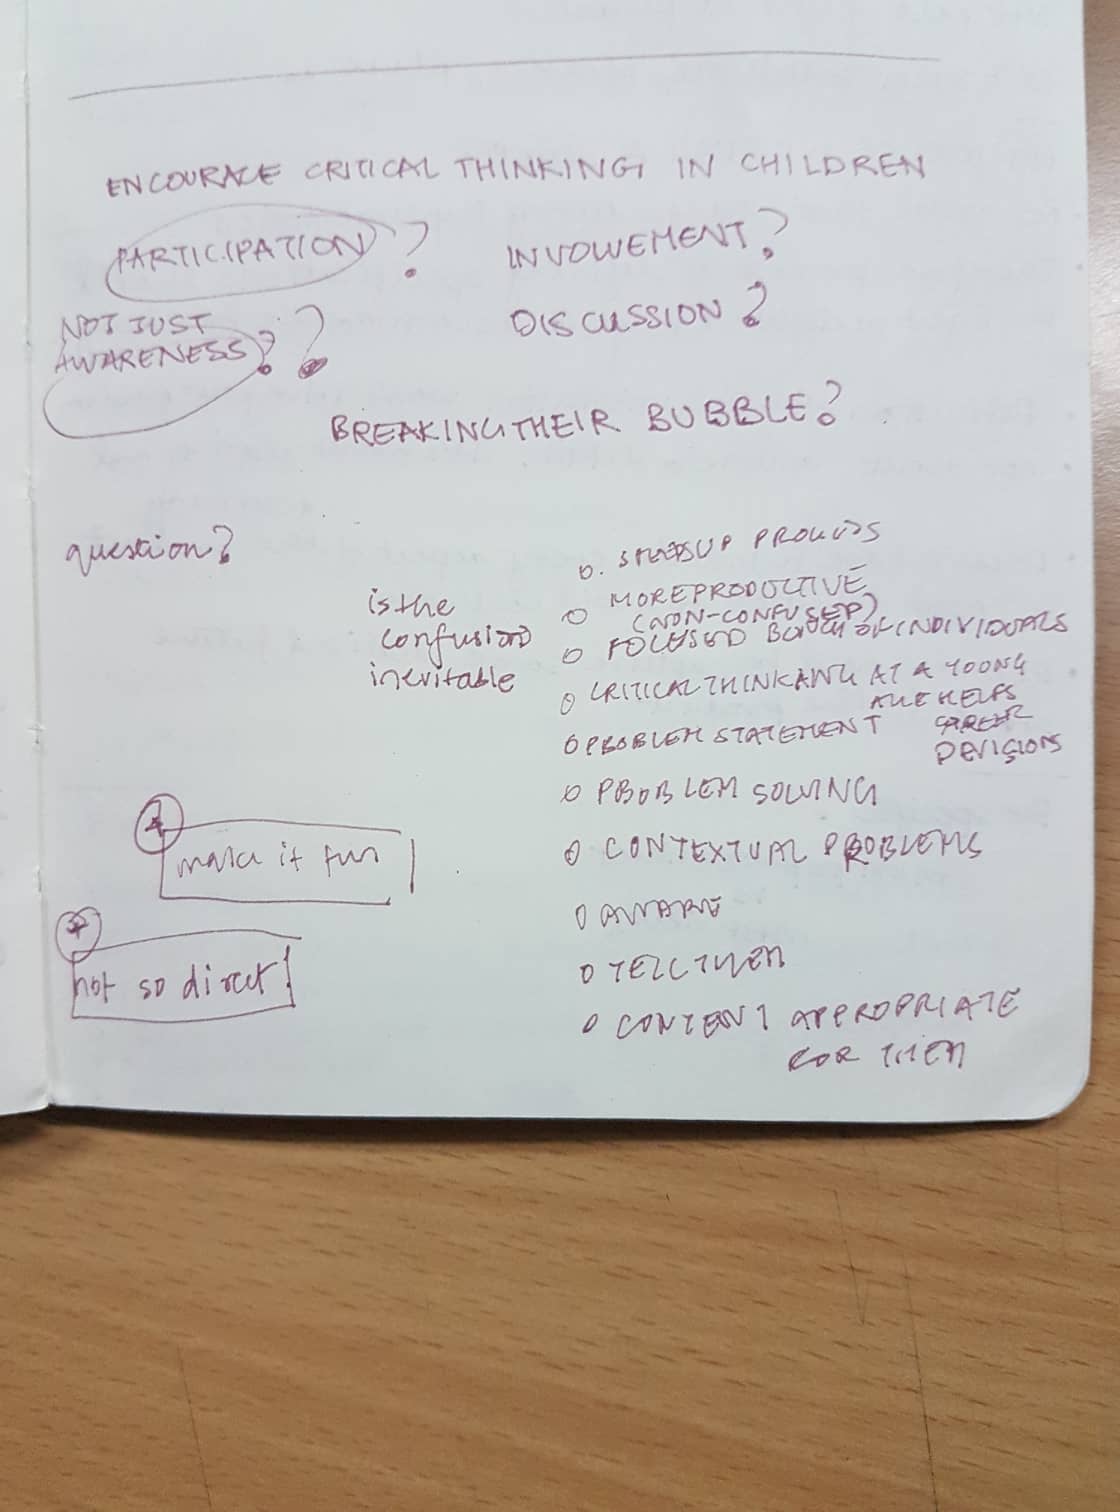 ENCOURAGE CRITICAL THINKING IN CHILDREN
PARTICIPATION ?
INVOLVEMENT ?
NOT JUST
AWARENESS ? ?
DISCUSSION ?
BREAKING THEIR BUBBLE ?
question ?
is the
confusion
inevitable
SPEEDS UP PROCESS
MORE PRODUCTIVE
(NON-CONFUSED)
FOCUSED BUNCH OF INDIVIDUALS
CRITICAL THINKING AT A YOUNG
AGE HELPS
CAREER
DECISIONS
PROBLEM STATEMENT
PROBLEM SOLVING
CONTEXTUAL PROBLEMS
AWARE
TELL THEM
CONTENT APPROPRIATE
FOR THEM
make it fun
not so direct!